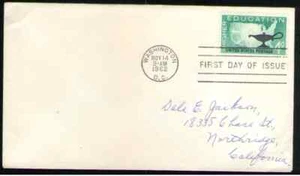 EDUCATION
WASHINGTON
NOV 14
9-AM
1962
D.C.
FIRST DAY OF ISSUE
Dale E. Jackson,
18335 Chase St,
Northridge,
California